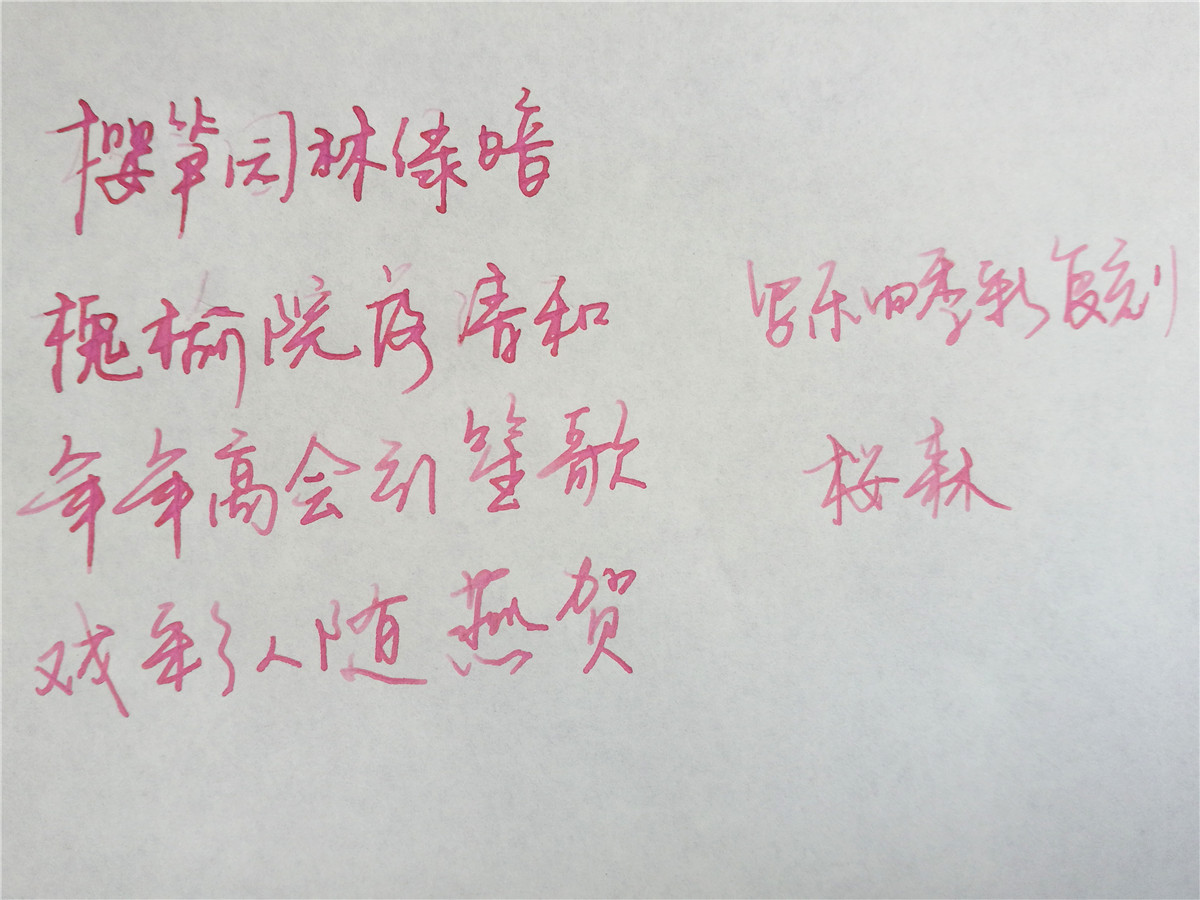 樱笋园林绿暗
槐榆院落清和
年年高会引笙歌
戏彩人随燕贺
写乐四季彩复刻
桜森